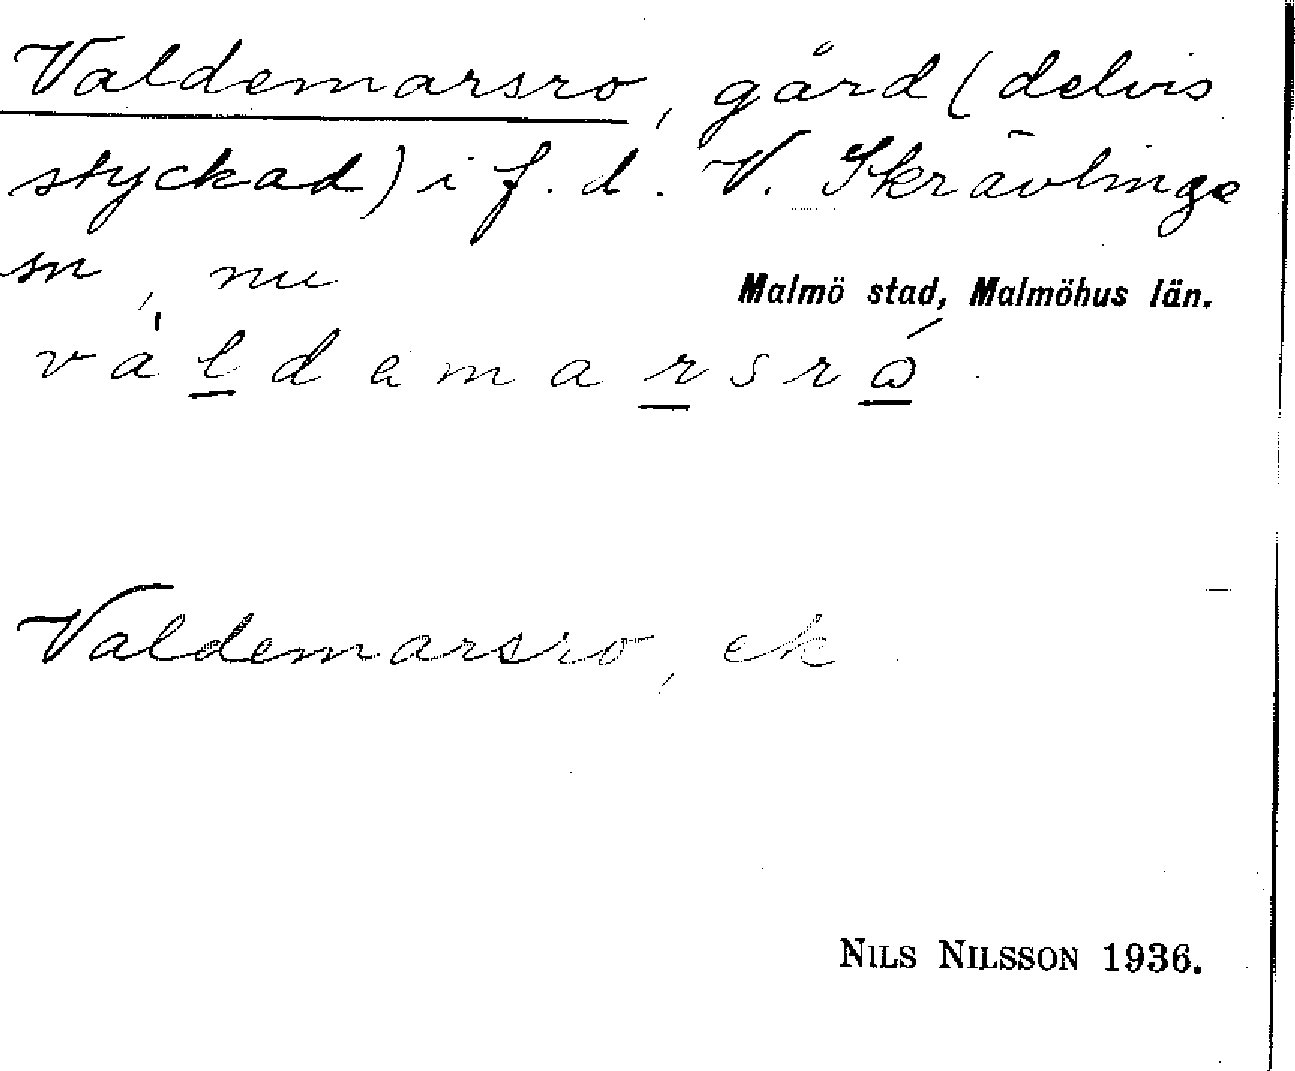 Valdemarsro, gård (delvis
styckad) i f. d. V. Skrävlinge
sn, nu Malmö stad, Malmöhus län.
vàldemarsró
Valdemarsro, ek
NILS NILSSON 1936.